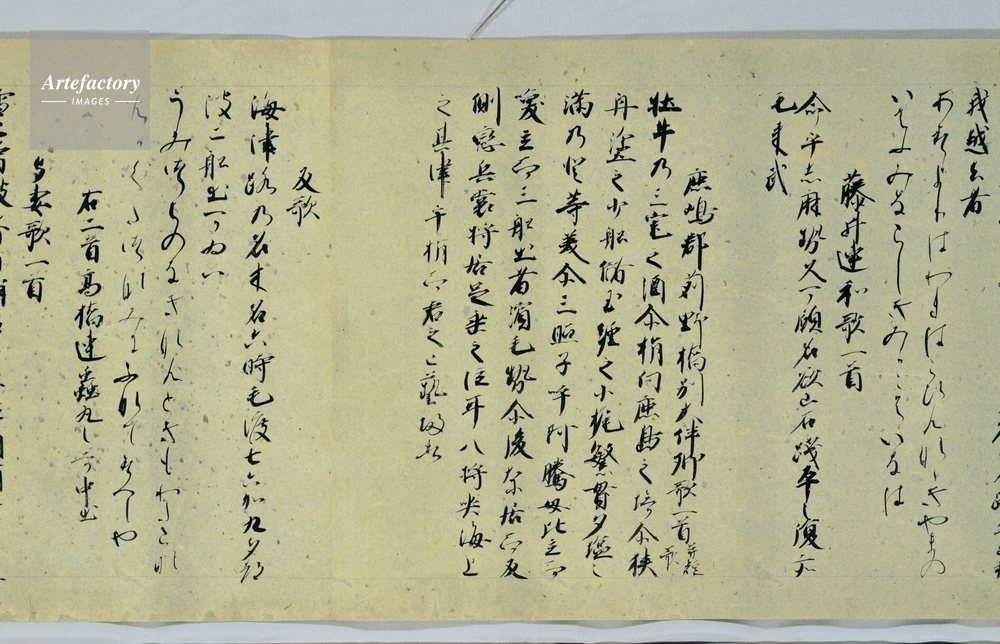 我越去者
あすよりはわれはこひんなゝきやまの
いはふみならしきみかこえいなは
藤井連和歌一首
命乎志麻勢久可願名欲山石践平之復亦
毛来武
鹿嶋郡苅野橋別大伴卿歌一首并短歌
牡牛乃三宅之酒尓指向鹿嶋之埼尓狭
丹塗之少船儲玉纒之小梶繁貫夕塩之
満乃登等美尓三船子呼阿騰母比立而
喚立而三船出者濱毛勢尓後奈居而反
側恋香裳将居足垂之泣耳八将哭海上
之其津乎指而君之己藝歸者
反歌
海津路乃名木名六時毛渡七六加九多都
波二船出可為八
うみつちのなきなんときもわたらな
んかくたつなみにふなてすへしや
右二首高橋連蟲丸之哥中出
与妻歌一首
Artefactory
IMAGES